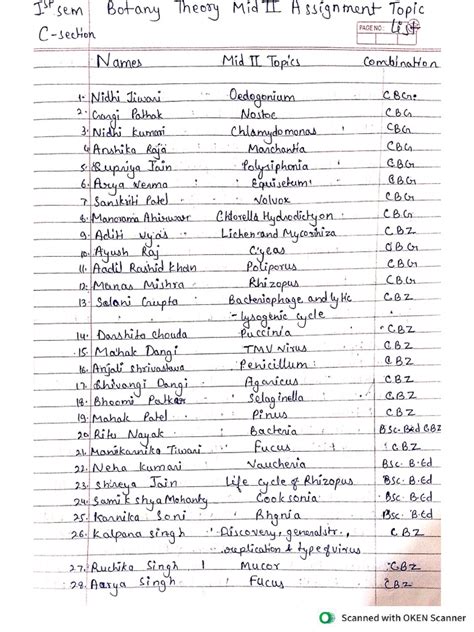 Ist sem Botany Theory Mid II Assignment Topic
C-section PAGE NO: list
Names Mid II Topics Combination
1. Nidhi Tiwari Oedogonium CBG
2. Gargi Pathak Nostoc CBG
3. Nidhi Kumari Chlamydomonas CBG
4. Anshika Raja Marchantia CBG
5. Rupriya Jain Polysiphonia CBG
6. Arya Verma Equisetum CBG
7. Sanskriti Patel Volvox CBG
8. Manorama Ahirwar Chlorella Hydrodictyon CBG
9. Aditi Vyas Lichen and Mycorrhiza CBZ
10. Ayush Raj Cycas CBG
11. Aadil Rashid Khan Poliporus CBG
12. Manas Mishra Rhizopus CBG
13. Saloni Gupta Bacteriophage and lytic CBZ
- lysogenic cycle
14. Darshita Chouda Puccinia CBZ
15. Mahak Dangi TMV Virus CBZ
16. Anjali Shrivastava Penicillum CBZ
17. Shivangi Dangi Agaricus CBZ
18. Bhoomi Patkar Selaginella CBZ
19. Mahak Patel Pinus CBZ
20. Ritu Nayak Bacteria BSc. B.ed CBZ
21. Manikarnika Tiwari Fucus CBZ
22. Neha Kumari Vaucheria BSc. B.Ed
23. Shreya Jain Life cycle of Rhizopus BSc. B.Ed
24. Samikshya Mohanty Cooksonia BSc. B.Ed
25. Kannika Soni Rhynia BSc. B.Ed
26. Kalpana Singh Discovery, general str., CBZ
replication & type of virus
27. Ruchika Singh Mucor CBZ
28. Aarya Singh Fucus CBZ
Scanned with OKEN Scanner